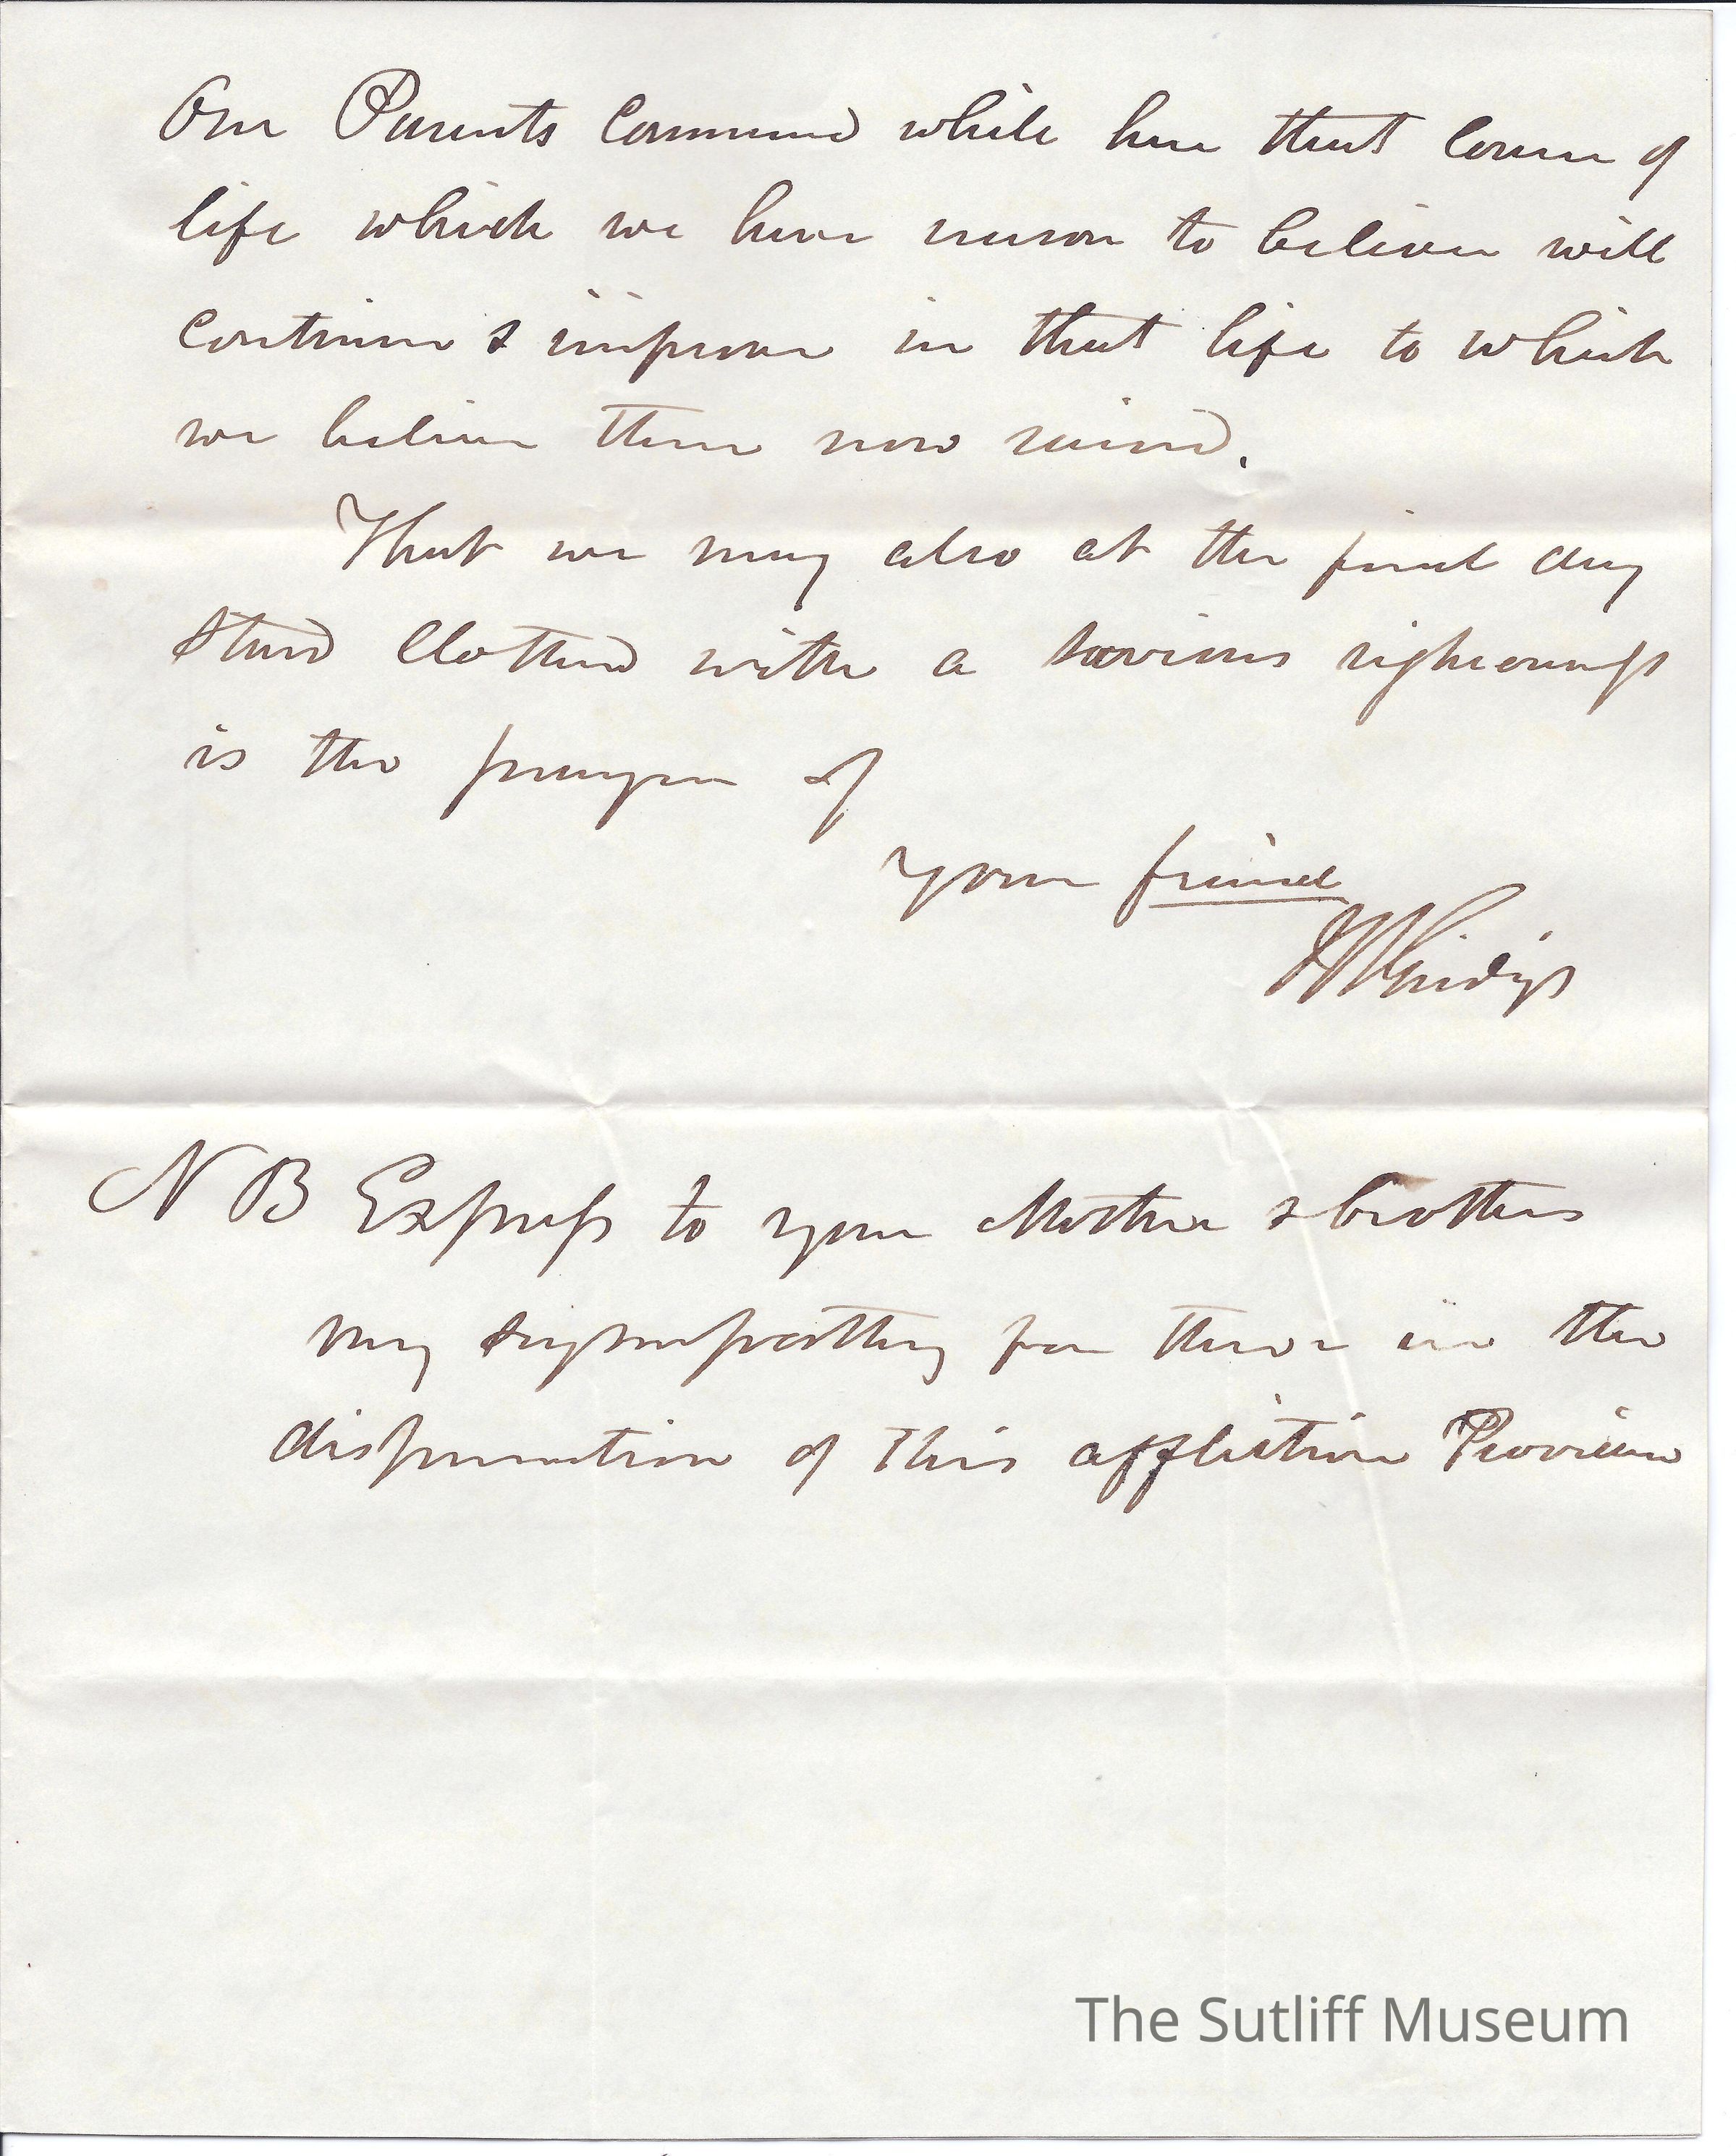 Our Parents Commenced while here that Course of
life which we have reason to believe will
continue & improve in that life to which
we believe them now raised.
That we may also at the final day
stand Clothed with a saviors righteousness
is the prayer of
your friend
N B Express to your Mother & brothers
my sympathy for them in the
dispensation of this affliction Providence
The Sutliff Museum